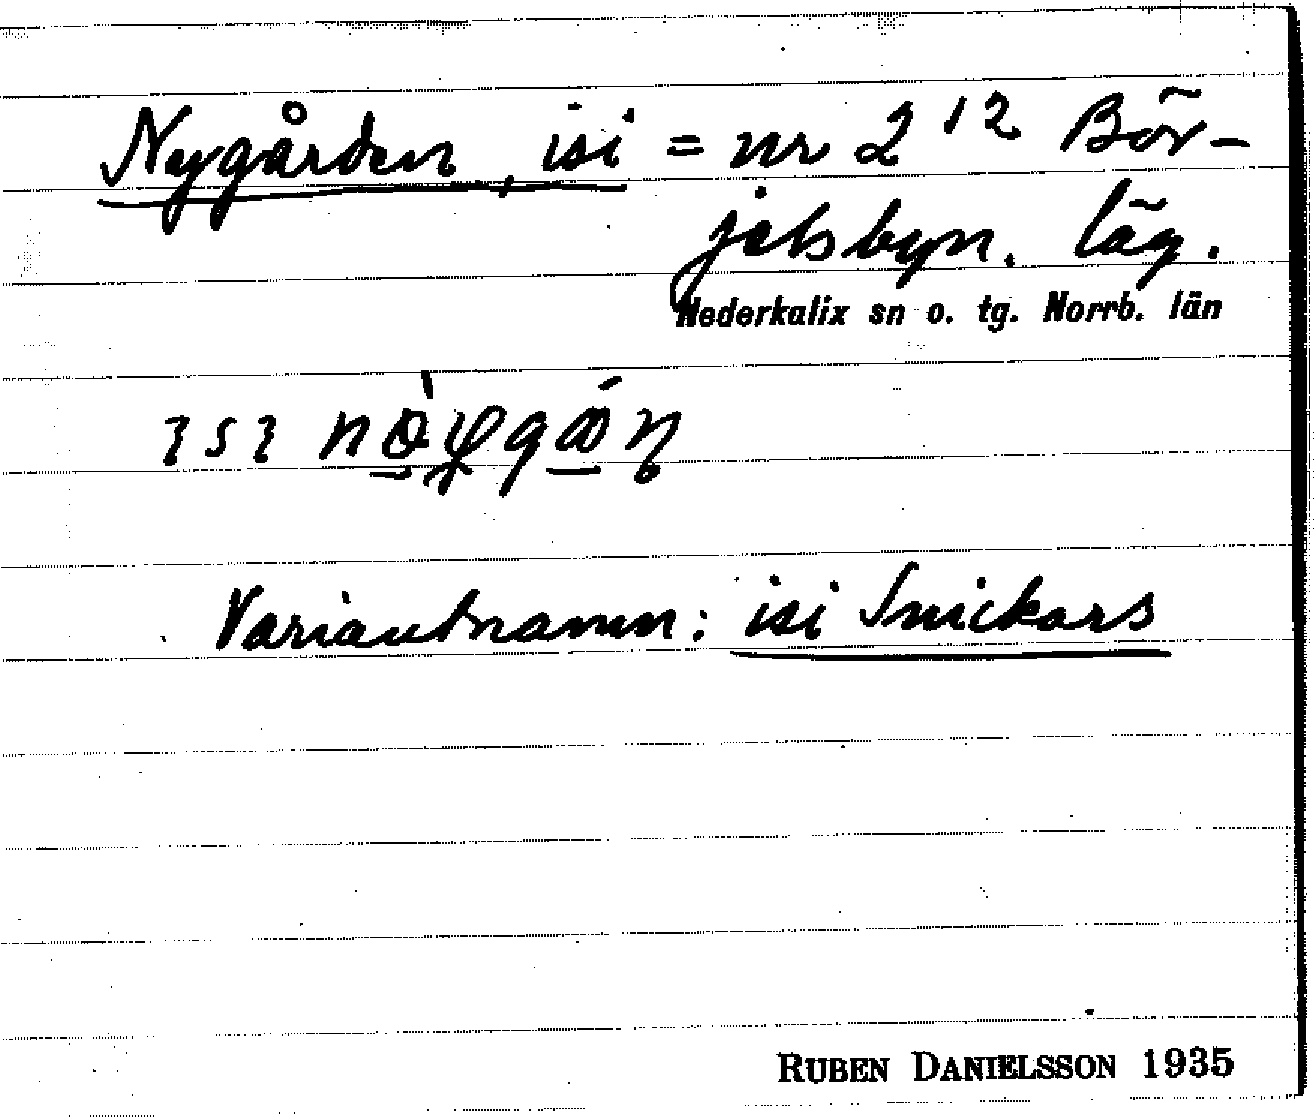 Nygården, isi = nr 2¹² Bör-
jelsbyn. läg.
Nederkalix sn o. tg. Norrb. län
Variantnamn: isi Snickars
RUBEN DANIELSSON 1935